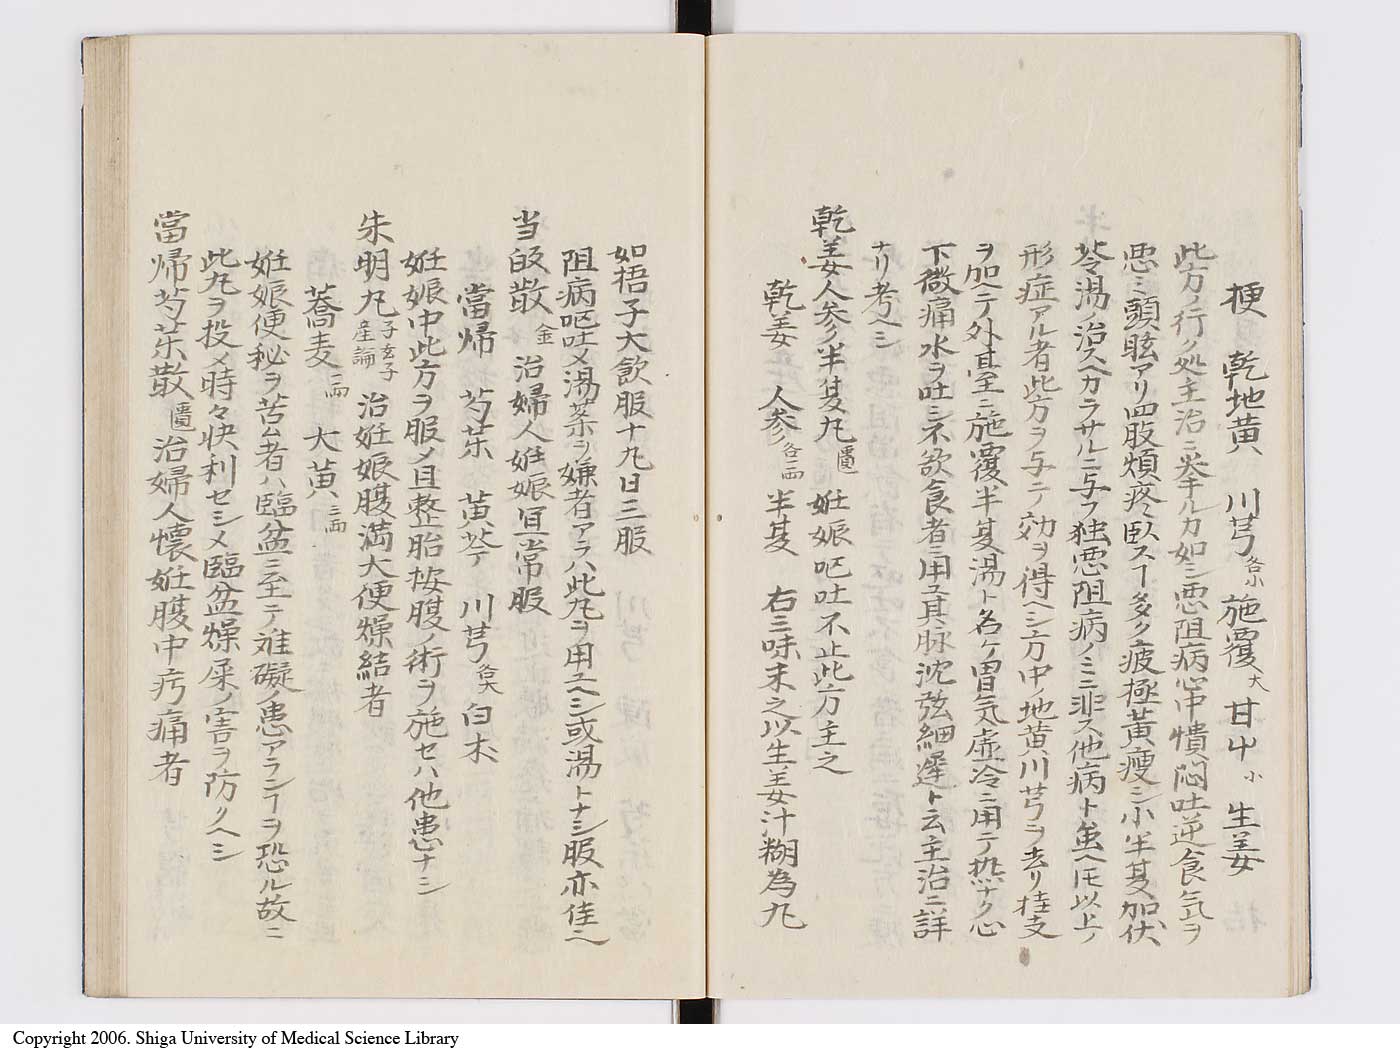 梗 乾地黄 川芎各小 施覆大 甘艸小 生姜
此方ノ行ク処主治ニ挙ルカ如シ悪阻病心中憒悶吐逆食気ヲ
悪ミ頭眩アリ四肢煩疼臥スヿ多ク疲極黄痩シ小半夏加伏
苓湯ノ治スヘカラサルニ与フ独悪阻病ノミニ非ス他病ト虽ヘ𪜈以上ノ
形症アル者此方ヲ与テ効ヲ得ヘシ方中ノ地黄川芎ヲ去リ桂支
ヲ加ヘテ外臺ニ施覆半夏湯ト名ケ胃気虚冷ニ用テ熱ナク心
下微痛水ヲ吐シ不欲食者ニ用ユ其脉沈弦細遅ト云主治ニ詳
ナリ考ヘシ
乾姜人参半夏丸 匱 妊娠呕吐不止此方主之
乾姜 人参各一両 半夏二両 右三味末之以生姜汁糊為丸
如梧子大飲服十丸日三服
阻病呕吐〆湯薬ヲ嫌者アラハ此丸ヲ用ユヘシ或湯トナシ服亦佳ヘ
当皈散 金 治婦人妊娠冝常服
當帰 芍薬 黄芩 川芎各大 白朮
妊娠中此方ヲ服〆且整胎按腹ノ術ヲ施セハ他患ナシ
朱明丸 子玄子産論 治妊娠腹満大便燥結者
蕎麦二両 大黄三両
妊娠便秘ヲ苦ム者ハ臨盆ニ至テ难礙ノ患アランヿヲ恐ル故ニ
此丸ヲ投〆時々快利セシメ臨盆燥屎ノ害ヲ防クヘシ
當帰芍薬散 匱 治婦人懐妊腹中㽱痛者
Copyright 2006. Shiga University of Medical Science Library